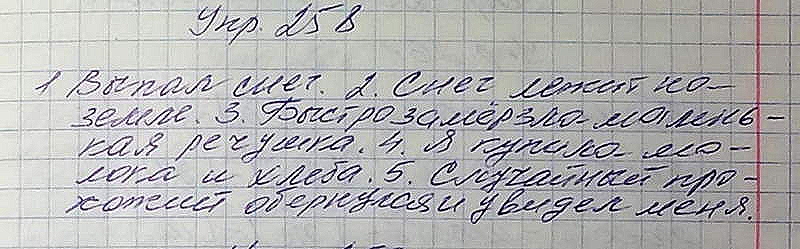 Упр. 258
1 Выпал снег. 2. Снег лежит на
земле. 3. Быстро замёрзла малень-
кая речушка. 4. Я купила мо-
лока и хлеба. 5. Случайный про-
хожий обернулся и увидел меня.